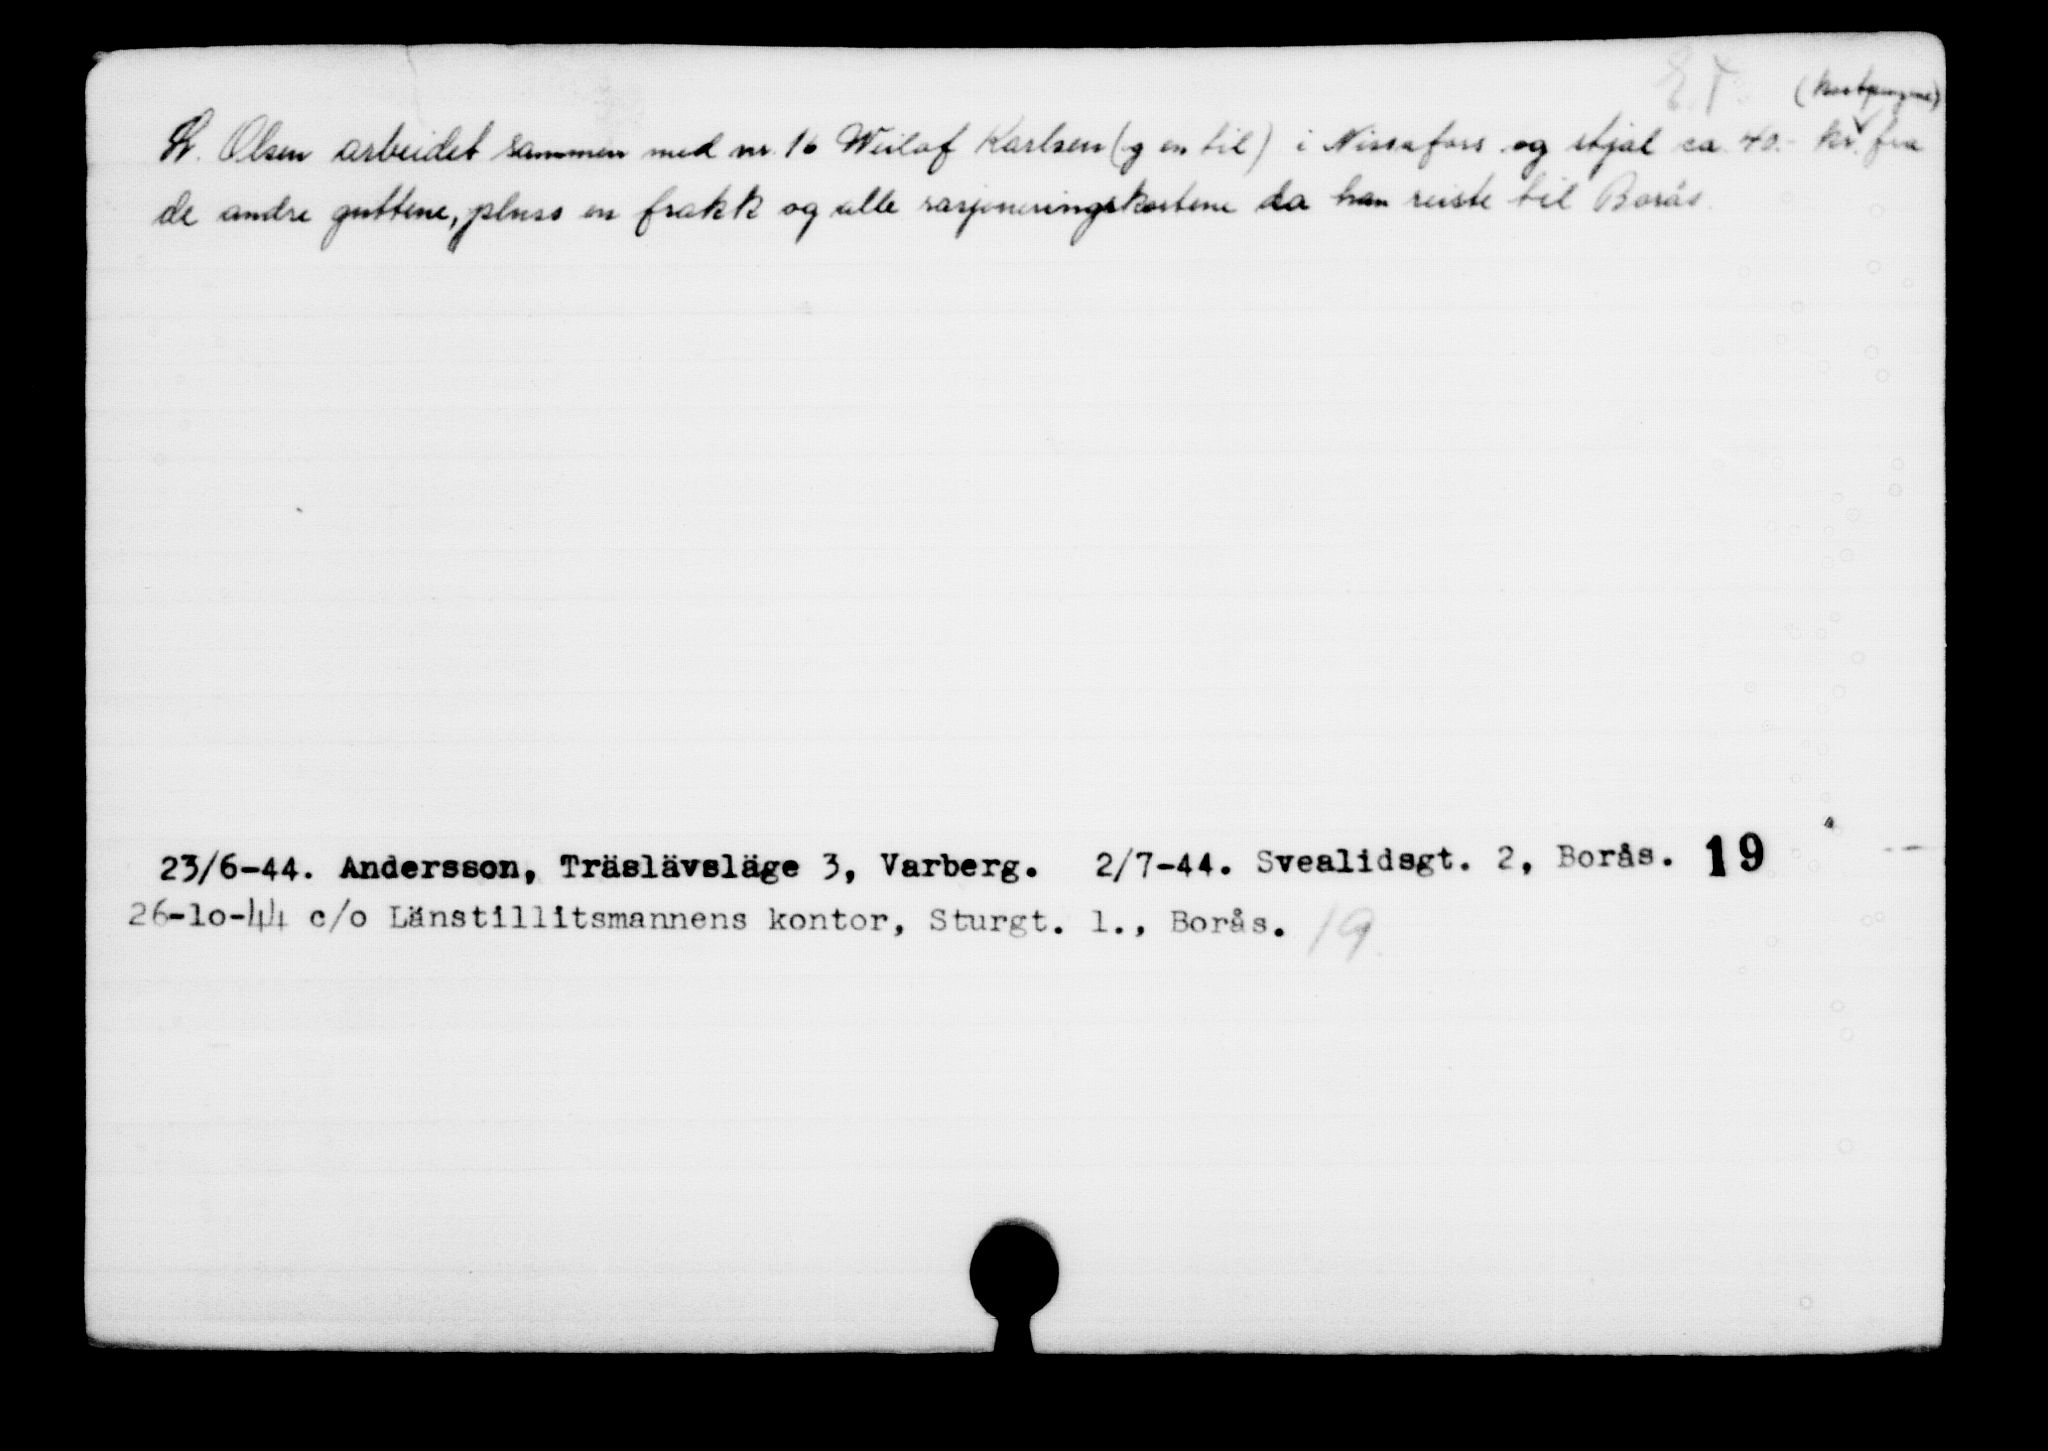 E.T.
(kostpengene)
St. Olsen arbeidet sammen med nr. 16 Weilof Karlsen (og en til) i Nissafors og stjal ca 40.- kr. fra
de andre guttene, pluss en frakk og alle rasjoneringskortene da han reiste til Borås.
23/6-44. Andersson, Träslävsläge 3, Varberg. 2/7-44. Svealidsgt. 2, Borås. 19
26-10-44 c/o Länstillitsmannens kontor, Sturgt. 1., Borås. 19.